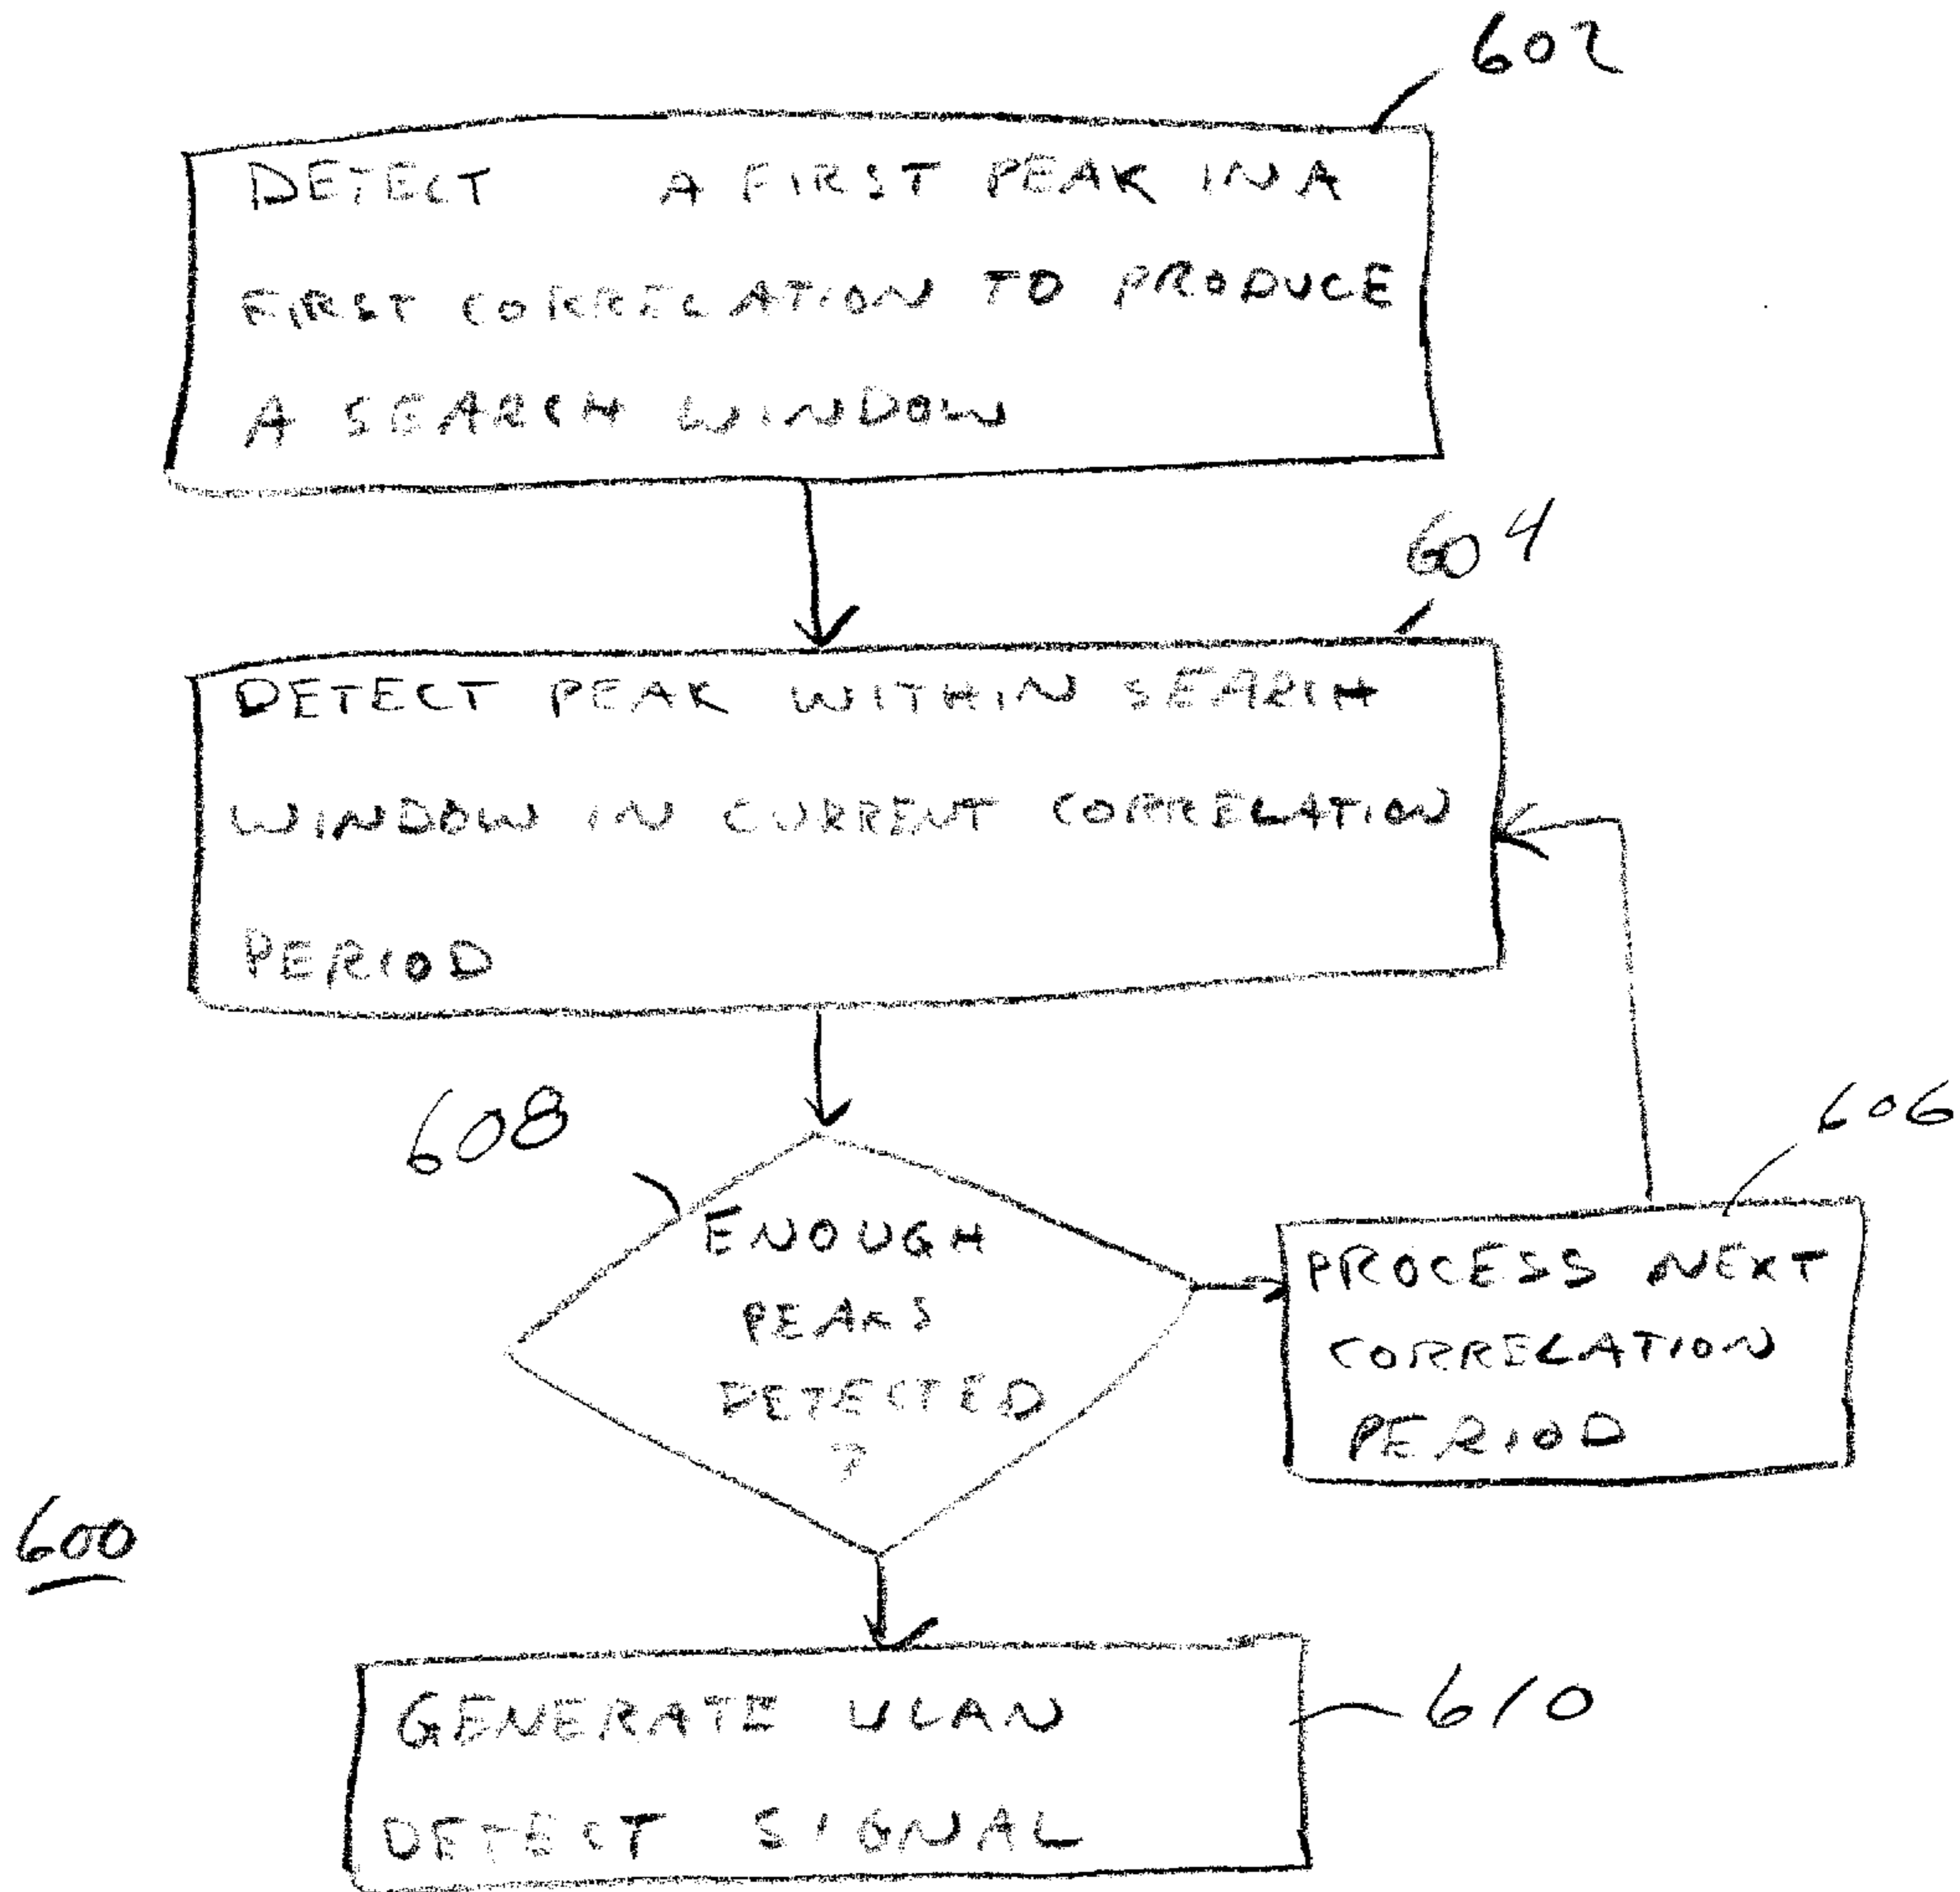 602
DETECT A FIRST PEAK IN A
FIRST CORRELATION TO PRODUCE
A SEARCH WINDOW
604
DETECT PEAK WITHIN SEARCH
WINDOW IN CURRENT CORRELATION
PERIOD
608
606
ENOUGH
PEAKS
DETECTED
?
PROCESS NEXT
CORRELATION
PERIOD
600
GENERATE WLAN
DETECT SIGNAL
610